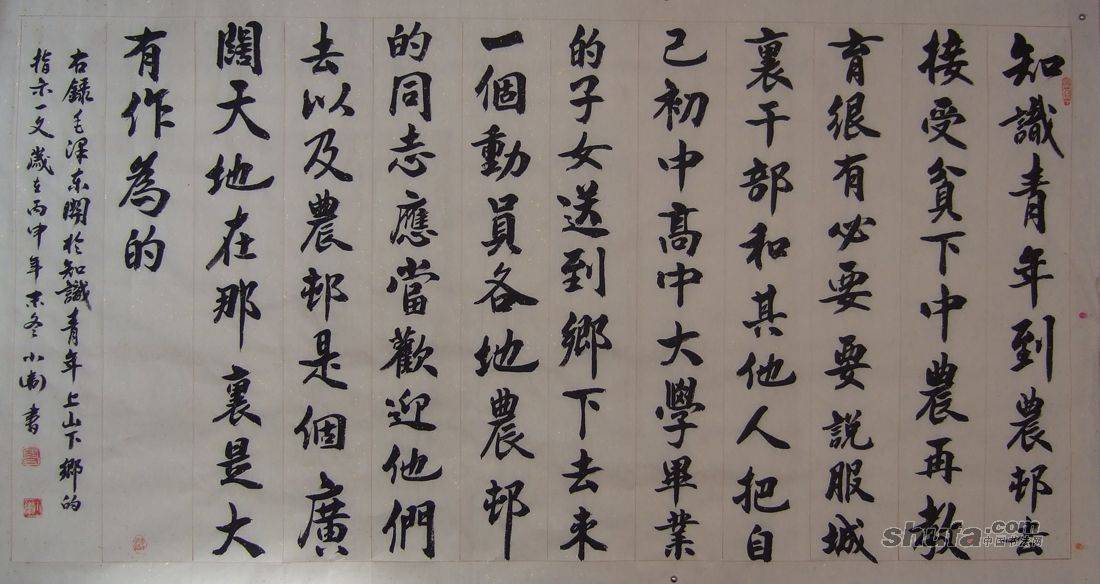 知識青年到農邨去
接受貧下中農再教
育很有必要要說服城
裏干部和其他人把自
己初中高中大學畢業
的子女送到鄉下去来
一個動員各地農邨
的同志應當歡迎他們
去以及農邨是個廣
闊天地在那裏是大
有作為的
右録毛澤东關於知識青年上山下鄉的
指示一文歲在丙申年末冬小衛書
shufa.com
中国书法网